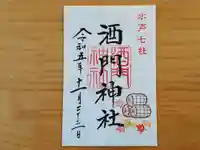 水戸七社
酒門神社
令和五年十一月二十三日